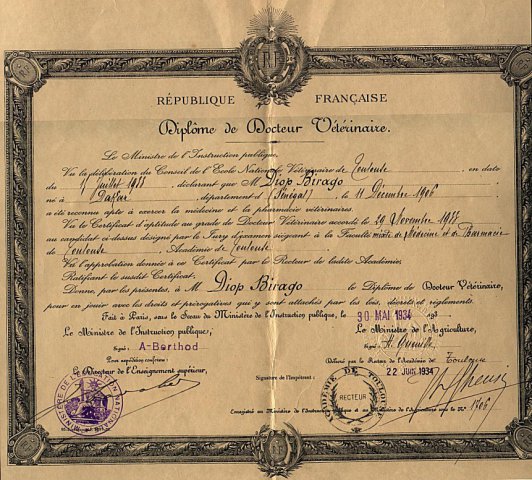 RF
RÉPUBLIQUE FRANÇAISE
Diplôme de Docteur Vétérinaire.
Le Ministre de l'Instruction publique,
Vu la délibération du Conseil de l'Ecole Nationale Vétérinaire de Toulouse, en date
du Juillet déclarant que M Diop Birago
né à Dakar, département d (Sénégal), le 11 Décembre 1906
a été reconnu apte à exercer la médecine et la pharmacie vétérinaires.
Vu le Certificat d'aptitude au grade de Docteur Vétérinaire accordé le 29 Novembre
au candidat ci-dessus désigné par le Jury d'examen siégeant à la Faculté mixte de Médecine et de Pharmacie
de Toulouse, Académie de Toulouse.
Vu l'approbation donnée à ce Certificat par le Recteur de ladite Académie,
Ratifiant le susdit Certificat,
Donne, par les présentes, à M Diop Birago le Diplôme de Docteur Vétérinaire,
pour en jouir avec les droits et prérogatives qui y sont attachés par les lois, décrets et règlements.
Fait à Paris, sous le Sceau du Ministère de l'Instruction publique, le 30 MAI 1934 193
Le Ministre de l'Instruction publique, Le Ministre de l'Agriculture,
Signé: A-Berthod Signé:
Pour expédition conforme:
Le Directeur de l'Enseignement supérieur, Délivré par le Recteur de l'Académie de Toulouse
22 JUIN 1934
Signature de l'Impétrant:
ACADÉMIE DE TOULOUSE
RECTEUR
Enregistré au Ministère de l'Instruction publique et au Ministère de l'Agriculture sous le N° 1706